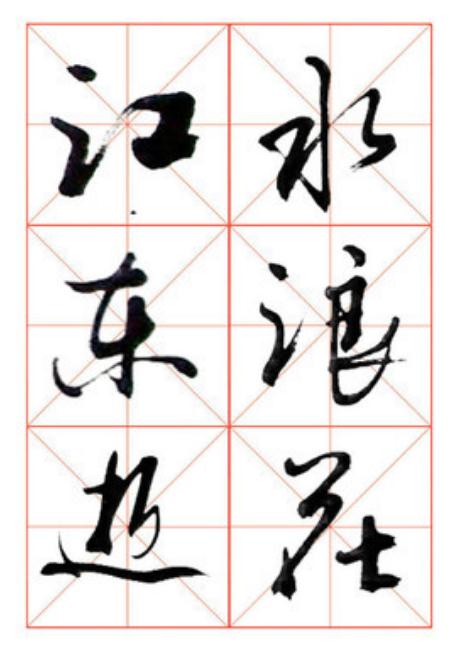 江东逝
水浪花